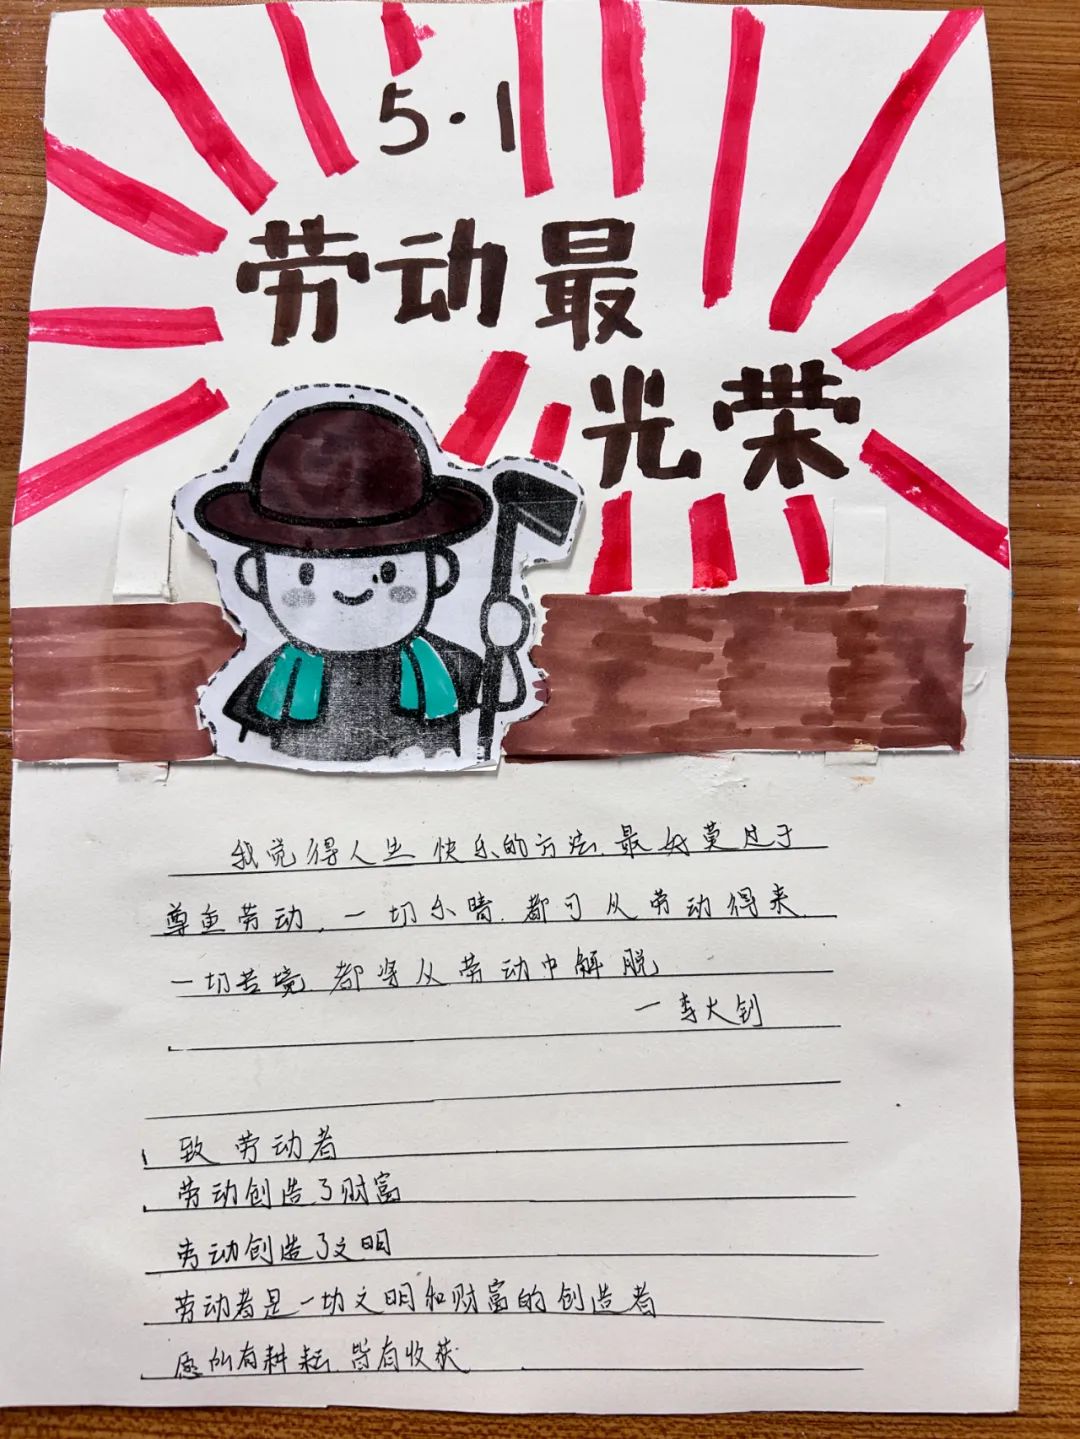 5·1
劳动最
光荣
我觉得人生快乐的方法.最好莫过于
尊重劳动.一切乐境.都可从劳动得来.
一切苦境.都将从劳动中解脱
一李大钊
致劳动者
劳动创造了财富
劳动创造了文明
劳动者是一切文明和财富的创造者
愿所有耕耘.皆有收获